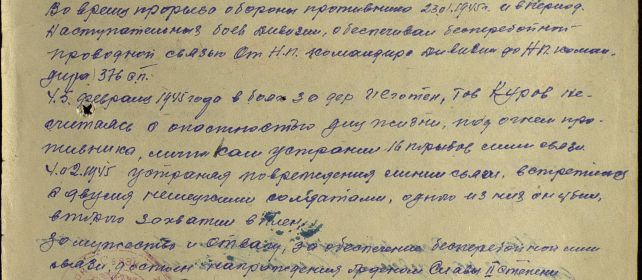 Во время прорыва обороны противника 23.01.1945г. и в период
Наступательных боев дивизии, обеспечивал бесперебойной
проводной связью от Н.П. командира дивизии до Н.П. коман-
дира 376 сп.
4.5. февраля 1945 года в боях за дер тов Куров не-
считаясь с опасностью для жизни, под огнем про-
тивника, лично сам устранил 16 порывов линии связи.
4.02.1945 устраняя повреждения линии связи, встретился
с двумя немецкими солдатами, одного из них он убил,
второго захватил в плен.
За мужество и отвагу, за обеспечение бесперебойной лин
связи, достоин награждения орденом Славы II степени